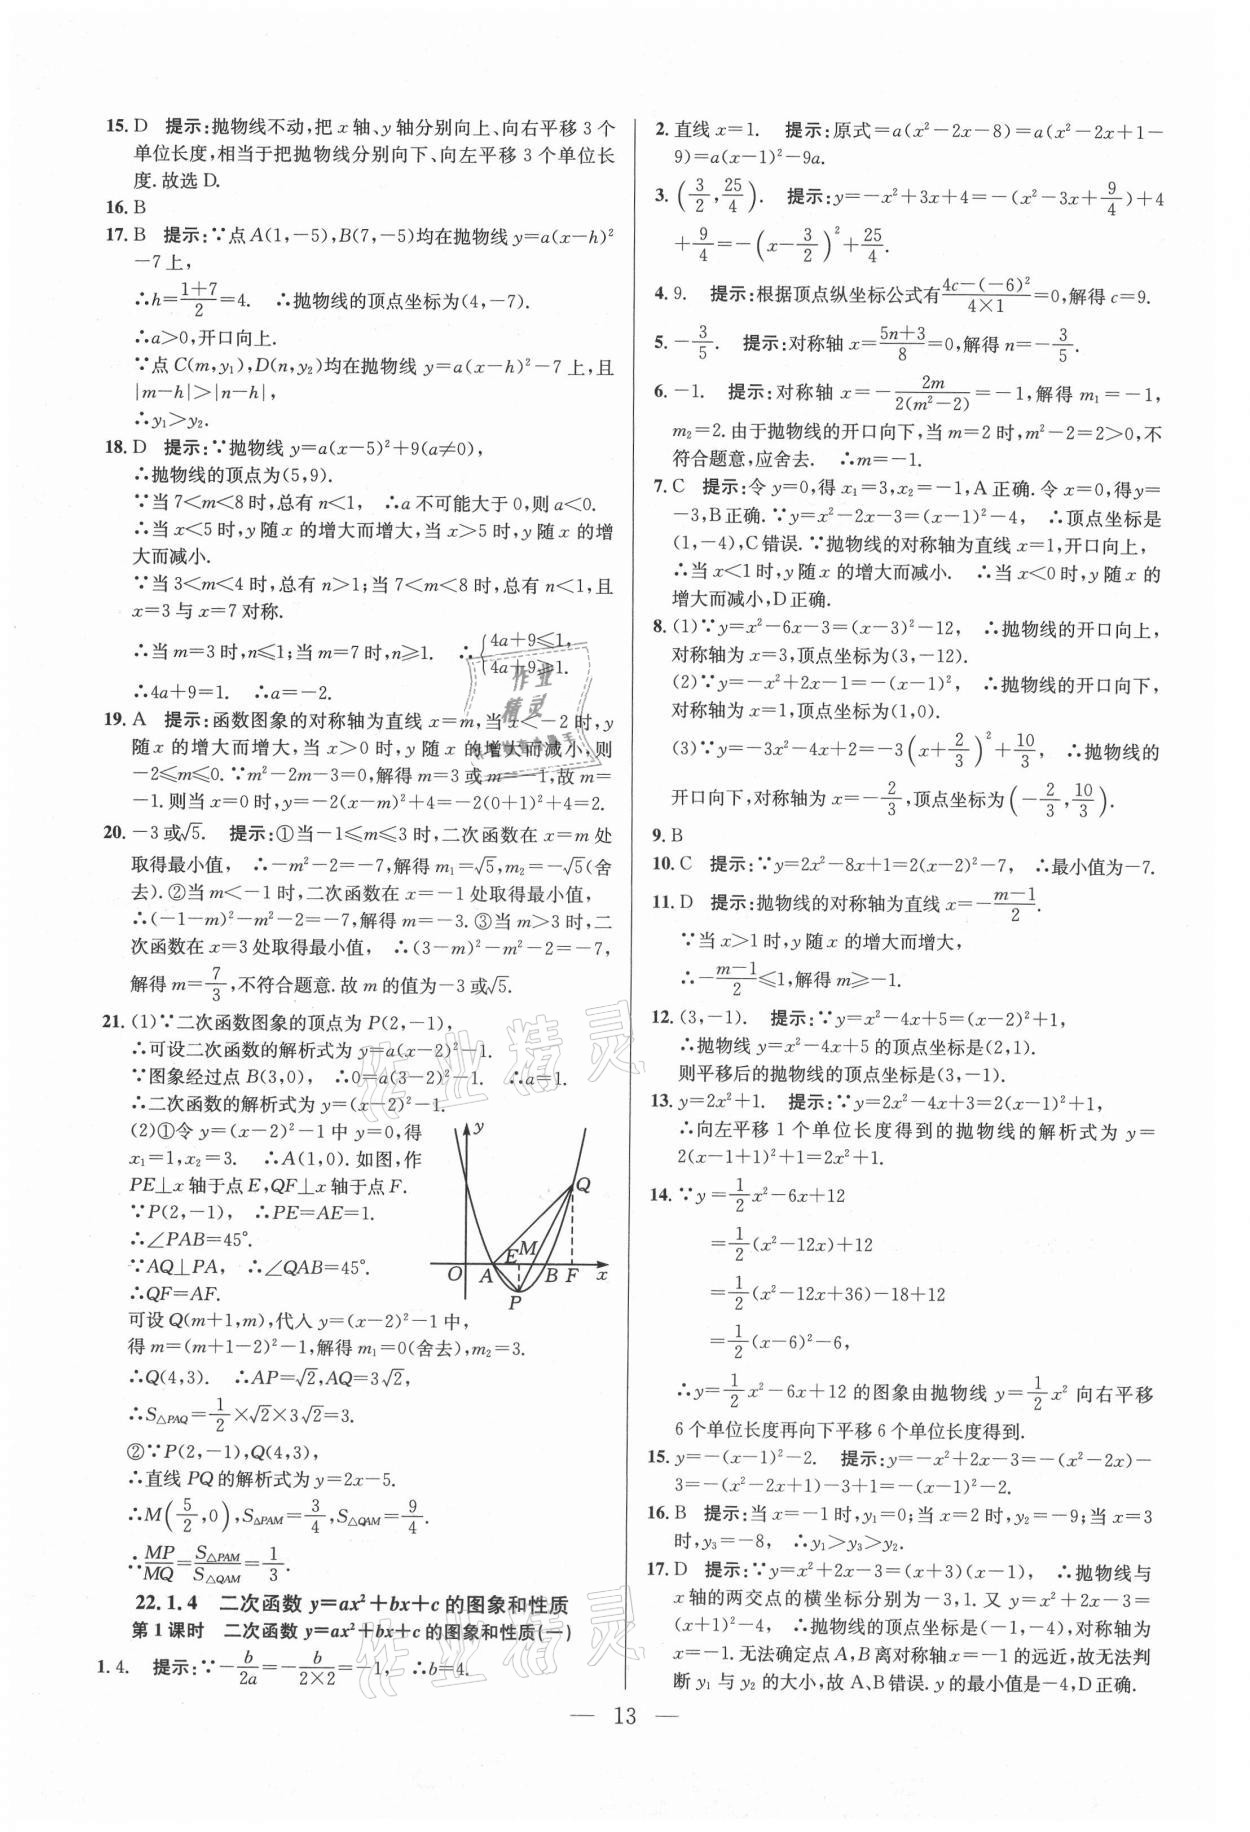 15. D 提示:抛物线不动,把 x 轴、y 轴分别向上、向右平移 3 个
单位长度,相当于把抛物线分别向下、向左平移 3 个单位长
度.故选 D.
16. B
17. B 提示:∵点 A(1,-5),B(7,-5)均在抛物线 y=a(x-h)²
-7 上,
∴h=(1+7)/2=4. ∴抛物线的顶点坐标为(4,-7).
∴a>0,开口向上.
∵点 C(m,y₁),D(n,y₂)均在抛物线 y=a(x-h)²-7 上,且
|m-h|>|n-h|,
∴y₁>y₂.
18. D 提示:∵抛物线 y=a(x-5)²+9(a≠0),
∴抛物线的顶点为(5,9).
∵当 7<m<8 时,总有 n<1, ∴a 不可能大于 0,则 a<0.
∴当 x<5 时,y 随 x 的增大而增大,当 x>5 时,y 随 x 的增
大而减小.
∵当 3<m<4 时,总有 n>1;当 7<m<8 时,总有 n<1,且
x=3 与 x=7 对称.
∴当 m=3 时,n≤1;当 m=7 时,n≥1. ∴{4a+9≤1,
4a+9≥1.
∴4a+9=1. ∴a=-2.
19. A 提示:函数图象的对称轴为直线 x=m,当 x<-2 时,y
随 x 的增大而增大,当 x>0 时,y 随 x 的增大而减小,则
-2≤m≤0.∵m²-2m-3=0,解得 m=3 或 m=-1,故 m=
-1.则当 x=0 时,y=-2(x-m)²+4=-2(0+1)²+4=2.
20. -3 或√5. 提示:①当-1≤m≤3 时,二次函数在 x=m 处
取得最小值, ∴-m²-2=-7,解得 m₁=√5,m₂=-√5(舍
去).②当 m<-1 时,二次函数在 x=-1 处取得最小值,
∴(-1-m)²-m²-2=-7,解得 m=-3.③当 m>3 时,二
次函数在 x=3 处取得最小值, ∴(3-m)²-m²-2=-7,
解得 m=7/3,不符合题意.故 m 的值为-3 或√5.
21. (1)∵二次函数图象的顶点为 P(2,-1),
∴可设二次函数的解析式为 y=a(x-2)²-1.
∵图象经过点 B(3,0), ∴0=a(3-2)²-1. ∴a=1.
∴二次函数的解析式为 y=(x-2)²-1.
(2)①令 y=(x-2)²-1 中 y=0,得
x₁=1,x₂=3. ∴A(1,0).如图,作
PE⊥x 轴于点 E,QF⊥x 轴于点 F.
∵P(2,-1), ∴PE=AE=1.
∴∠PAB=45°.
∵AQ⊥PA, ∴∠QAB=45°.
∴QF=AF.
y
Q
E M
O A B F x
P
可设 Q(m+1,m),代入 y=(x-2)²-1 中,
得 m=(m+1-2)²-1,解得 m₁=0(舍去),m₂=3.
∴Q(4,3). ∴AP=√2,AQ=3√2,
∴S△PAQ=1/2×√2×3√2=3.
②∵P(2,-1),Q(4,3),
∴直线 PQ 的解析式为 y=2x-5.
∴M(5/2,0),S△PAM=3/4,S△QAM=9/4.
∴MP/MQ=S△PAM/S△QAM=1/3.
22.1.4 二次函数 y=ax²+bx+c 的图象和性质
第 1 课时 二次函数 y=ax²+bx+c 的图象和性质(一)
1. 4. 提示:∵-b/2a=-b/(2×2)=-1, ∴b=4.
2. 直线 x=1. 提示:原式=a(x²-2x-8)=a(x²-2x+1-
9)=a(x-1)²-9a.
3. (3/2,25/4). 提示:y=-x²+3x+4=-(x²-3x+9/4)+4
+9/4=-(x-3/2)²+25/4.
4. 9. 提示:根据顶点纵坐标公式有(4c-(-6)²)/(4×1)=0,解得 c=9.
5. -3/5. 提示:对称轴 x=(5n+3)/8=0,解得 n=-3/5.
6. -1. 提示:对称轴 x=-2m/(2(m²-2))=-1,解得 m₁=-1,
m₂=2.由于抛物线的开口向下,当 m=2 时,m²-2=2>0,不
符合题意,应舍去. ∴m=-1.
7. C 提示:令 y=0,得 x₁=3,x₂=-1,A 正确.令 x=0,得 y=
-3,B 正确.∵y=x²-2x-3=(x-1)²-4, ∴顶点坐标是
(1,-4),C 错误.∵抛物线的对称轴为直线 x=1,开口向上,
∴当 x<1 时,y 随 x 的增大而减小. ∴当 x<0 时,y 随 x 的
增大而减小,D 正确.
8. (1)∵y=x²-6x-3=(x-3)²-12, ∴抛物线的开口向上,
对称轴为 x=3,顶点坐标为(3,-12).
(2)∵y=-x²+2x-1=-(x-1)², ∴抛物线的开口向下,
对称轴为 x=1,顶点坐标为(1,0).
(3)∵y=-3x²-4x+2=-3(x+2/3)²+10/3, ∴抛物线的
开口向下,对称轴为 x=-2/3,顶点坐标为(-2/3,10/3).
9. B
10. C 提示:∵y=2x²-8x+1=2(x-2)²-7, ∴最小值为-7.
11. D 提示:抛物线的对称轴为直线 x=-(m-1)/2.
∵当 x>1 时,y 随 x 的增大而增大,
∴-(m-1)/2≤1,解得 m≥-1.
12. (3,-1). 提示:∵y=x²-4x+5=(x-2)²+1,
∴抛物线 y=x²-4x+5 的顶点坐标是(2,1).
则平移后的抛物线的顶点坐标是(3,-1).
13. y=2x²+1. 提示:∵y=2x²-4x+3=2(x-1)²+1,
∴向左平移 1 个单位长度得到的抛物线的解析式为 y=
2(x-1+1)²+1=2x²+1.
14. ∵y=1/2x²-6x+12
=1/2(x²-12x)+12
=1/2(x²-12x+36)-18+12
=1/2(x-6)²-6,
∴y=1/2x²-6x+12 的图象由抛物线 y=1/2x² 向右平移
6 个单位长度再向下平移 6 个单位长度得到.
15. y=-(x-1)²-2. 提示:y=-x²+2x-3=-(x²-2x)-
3=-(x²-2x+1)-3+1=-(x-1)²-2.
16. B 提示:当 x=-1 时,y₁=0;当 x=2 时,y₂=-9;当 x=3
时,y₃=-8, ∴y₁>y₃>y₂.
17. D 提示:∵y=x²+2x-3=(x+3)(x-1), ∴抛物线与
x 轴的两交点的横坐标分别为-3,1.又 y=x²+2x-3=
(x+1)²-4, ∴抛物线的顶点坐标是(-1,-4),对称轴为
x=-1.无法确定点 A,B 离对称轴 x=-1 的远近,故无法判
断 y₁ 与 y₂ 的大小,故 A、B 错误.y 的最小值是-4,D 正确.
— 13 —
作业精灵
作业精灵
作业
精灵